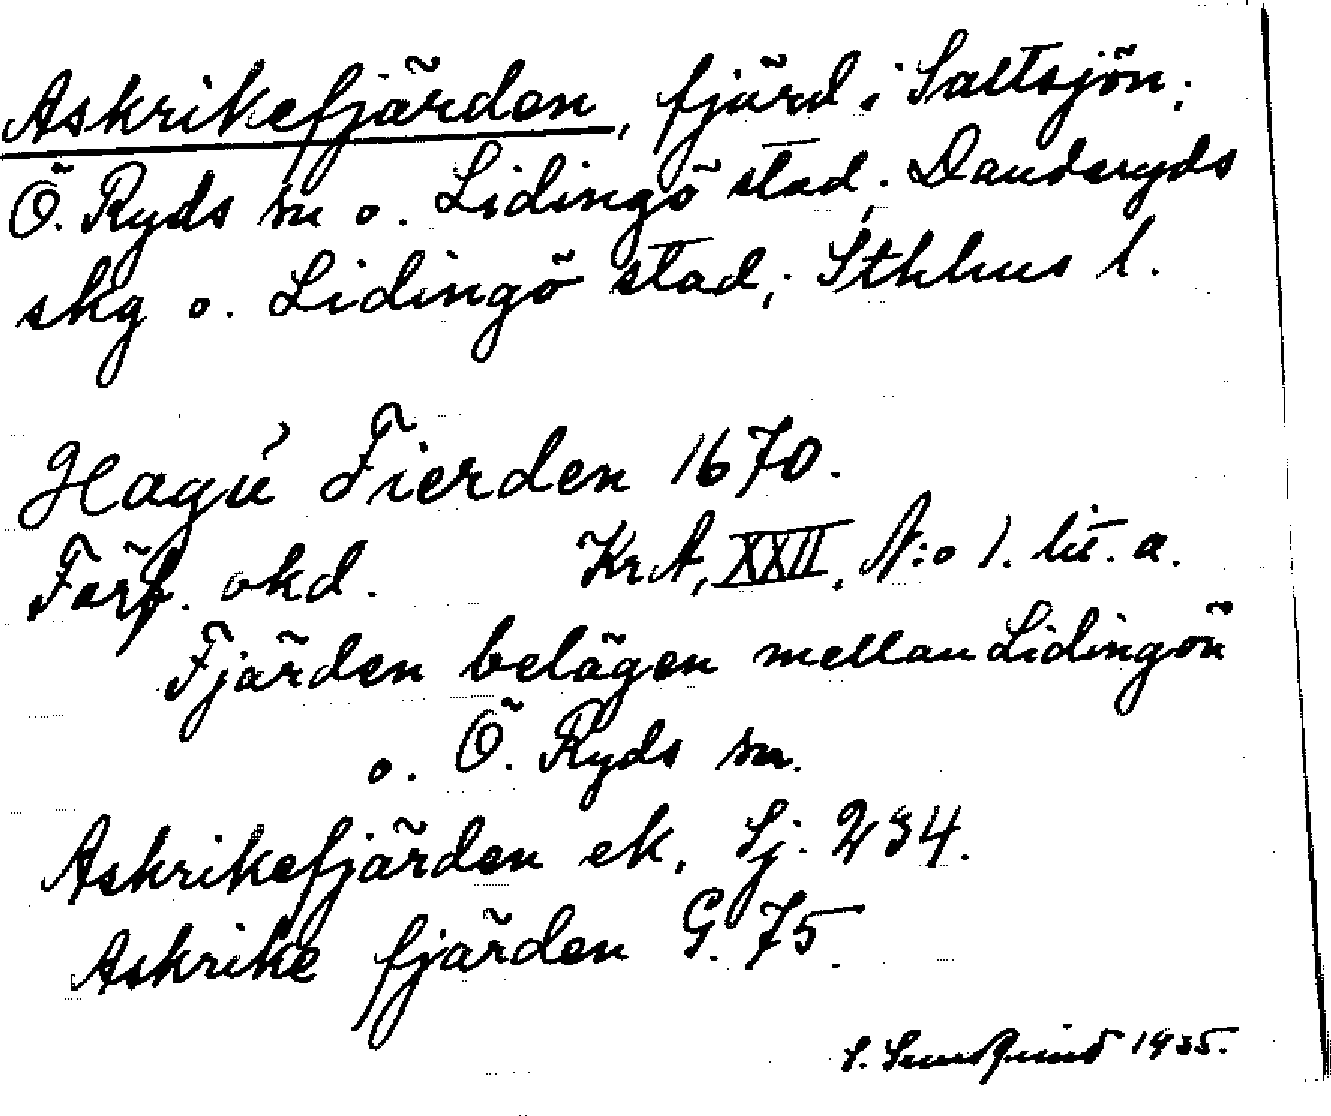 Askrikefjärden, fjärd i Saltsjön;
Ö. Ryds sn o. Lidingö stad; Danderyds
skg o. Lidingö stad; Sthlms l.
Hagú Fierden 1670.
Förf. okd. KrA, XXII. N:o 1. lit. a.
Fjärden belägen mellan Lidingön
o. Ö. Ryds sn.
Askrikefjärden ek, Sj. 234.
Askrike fjärden G. 75.
1935.